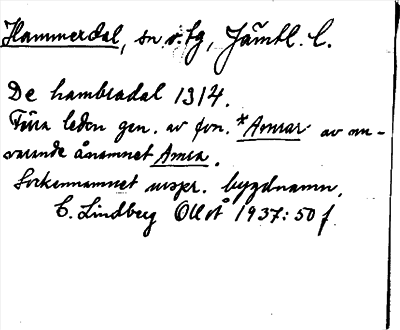 Hammerdal, sn o. tg, Jämtl. l.
De hambradal 1314.
Förra leden gen. av fvn. *Amrar av nu-
varande ånamnet Amra.
Sockennamnet urspr. bygdnamn.
C. Lindberg OlloÅ 1937: 50 f